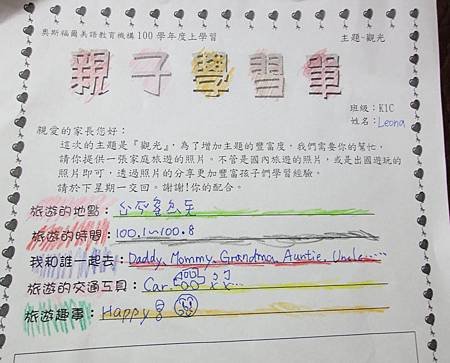 奧斯福爾美語教育機構100學年度上學習 主題-觀光
親子學習單
班級：K1C
姓名：Leona
親愛的家長您好：
這次的主題是『觀光』，為了增加主題的豐富度，我們需要你的幫忙，
請你提供一張家庭旅遊的照片。不管是國內旅遊的照片，或是出國遊玩的
照片即可，透過照片的分享更加豐富孩子們學習經驗。
請於下星期一交回。謝謝!你的配合。
旅遊的地點：
旅遊的時間：100.1~100.8
我和誰一起去：Daddy, Mommy, Grandma, Auntie, Uncle......
旅遊的交通工具：Car
旅遊趣事：Happy